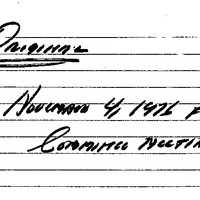 Original
November 4, 1976
Committee Meetin